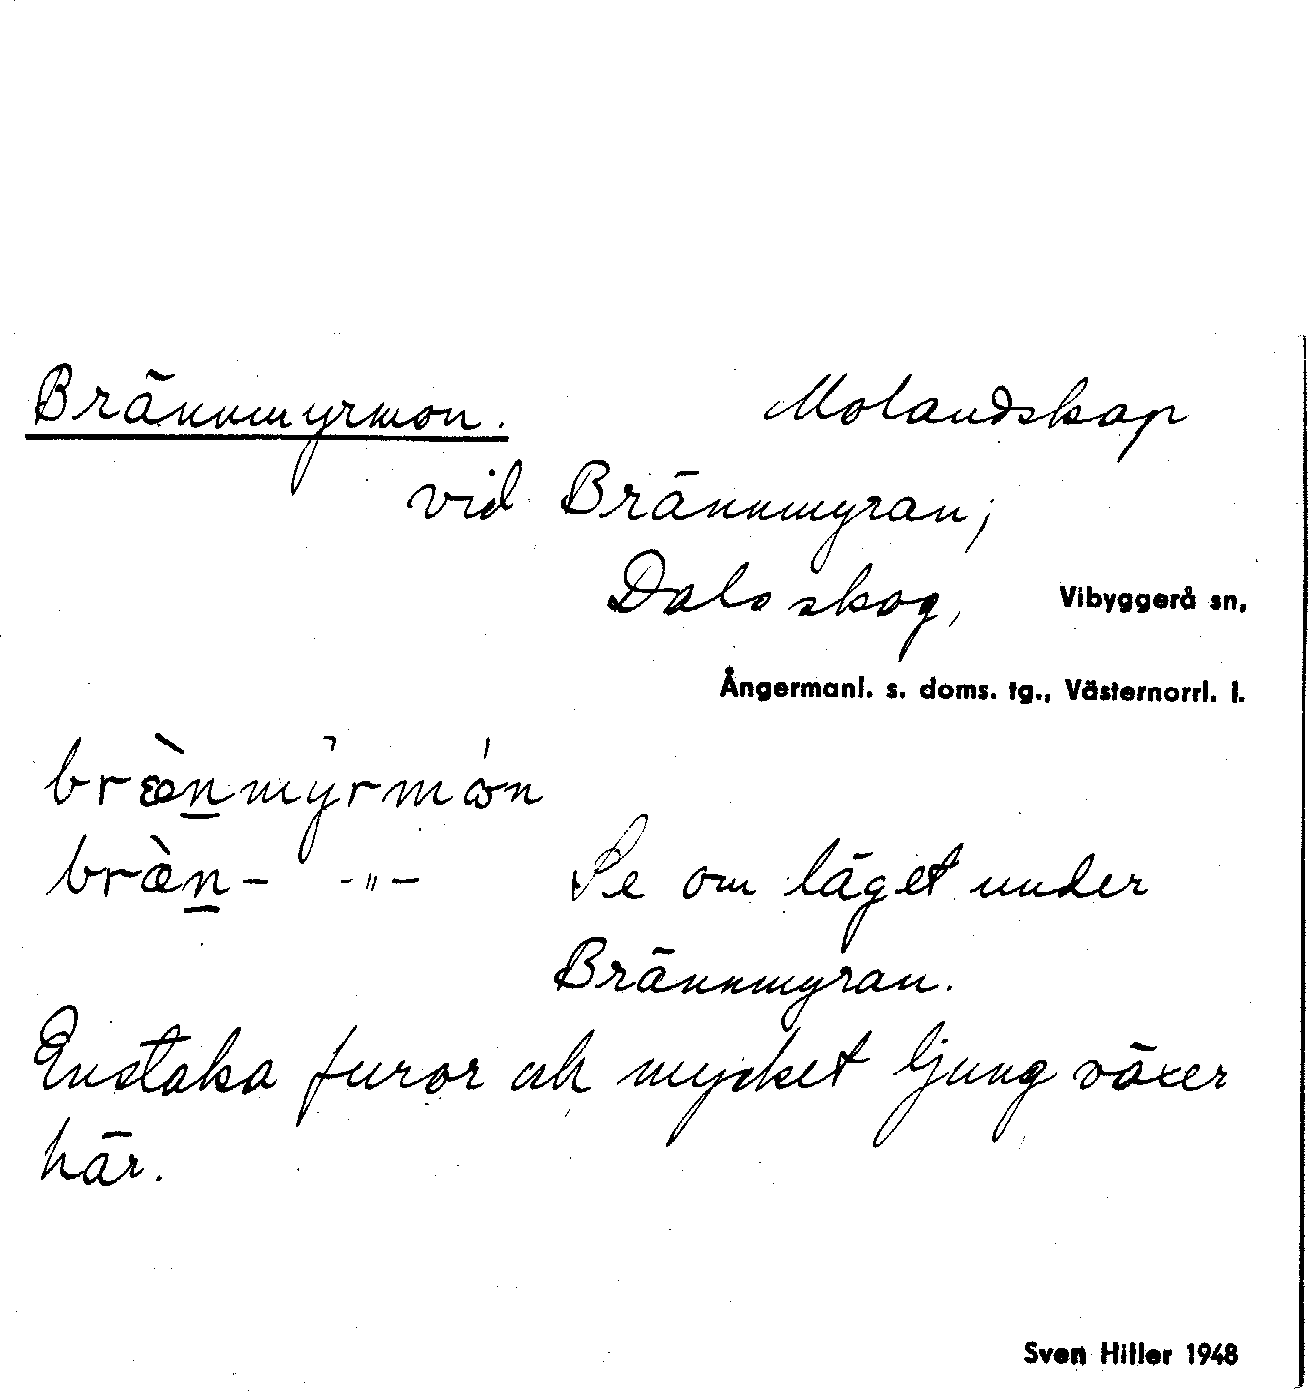 Brännmyrmon. Molandskap
vid Brännmyran,
Dals skog, Vibyggerå sn,
Ångermanl. s. doms. tg., Västernorrl. l.
bræ̀n̲myrmón
bræ̀n̲- -"-
Se om läget under
Brännmyran.
Enstaka furor och mycket ljung växer
här.
Sven Hiller 1948